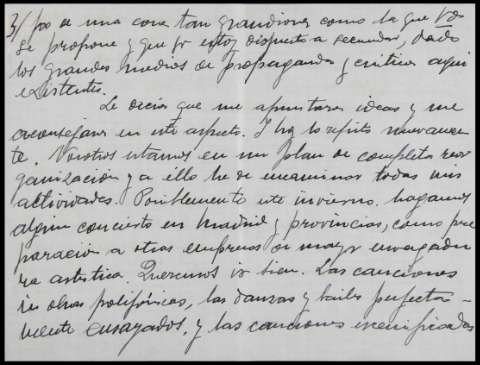 3/ po de una cosa tan grandiosa como la que Vds
se propone y que yo estoy dispuesto a secundar, dado
los grandes medios de propaganda y critica aqui
existentes.
Le decia que me apuntara ideas y me
aconsejara en este aspecto. Y hoy lo repito nuevamen
te. Nosotros estamos en un plan de completa reor
ganización y a ello he de encaminar todas mis
actividades. Posiblemente este invierno hagamos
algun concierto en Madrid y provincias, como pre
paración a otras empresas de mayor envergadu
ra artistica. Queremos ir bien. Las canciones
en obras polifónicas, las danzas y bailes perfecta-
mente ensayados, y las canciones escenificadas